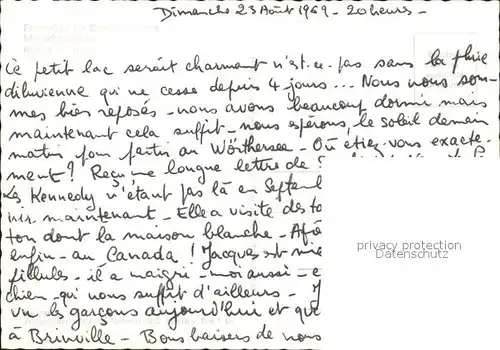 Dimanche 23 Août 1969 - 20 heurs -
Ce petit lac serait charmant n'est-ce-pas sans la pluie
diluvienne qui ne cesse depuis 4 jours... Nous nous som-
mes bien reposés - nous avons beaucoup dormi mais
maintenant cela suffit - nous espérons le soleil demain
matin pour partir au Wörthersee - Où étiez-vous exacte-
ment? Reçu une longue lettre de
Les Kennedy n'étant pas là en Septem
nir maintenant - Elle a visité des to
ton dont la maison blanche -
enfin - au Canada ! Jacques est
filleuls - il a maigri - moi aussi - e
chien - qui nous suffit d'ailleurs - J
vu les garçons aujourd'hui et que
à Brinville - Bons baisers de nous
privacy protection
Datenschutz